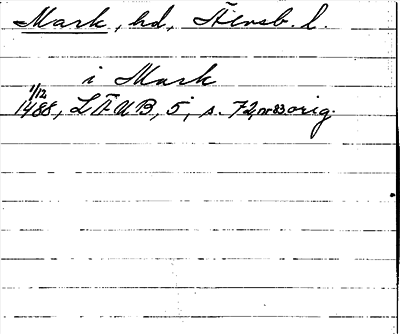 Mark, hd, Älvsb. l.
i Mark
1/12
1488, LÄUB, 5, s. 72, nr 83 orig.